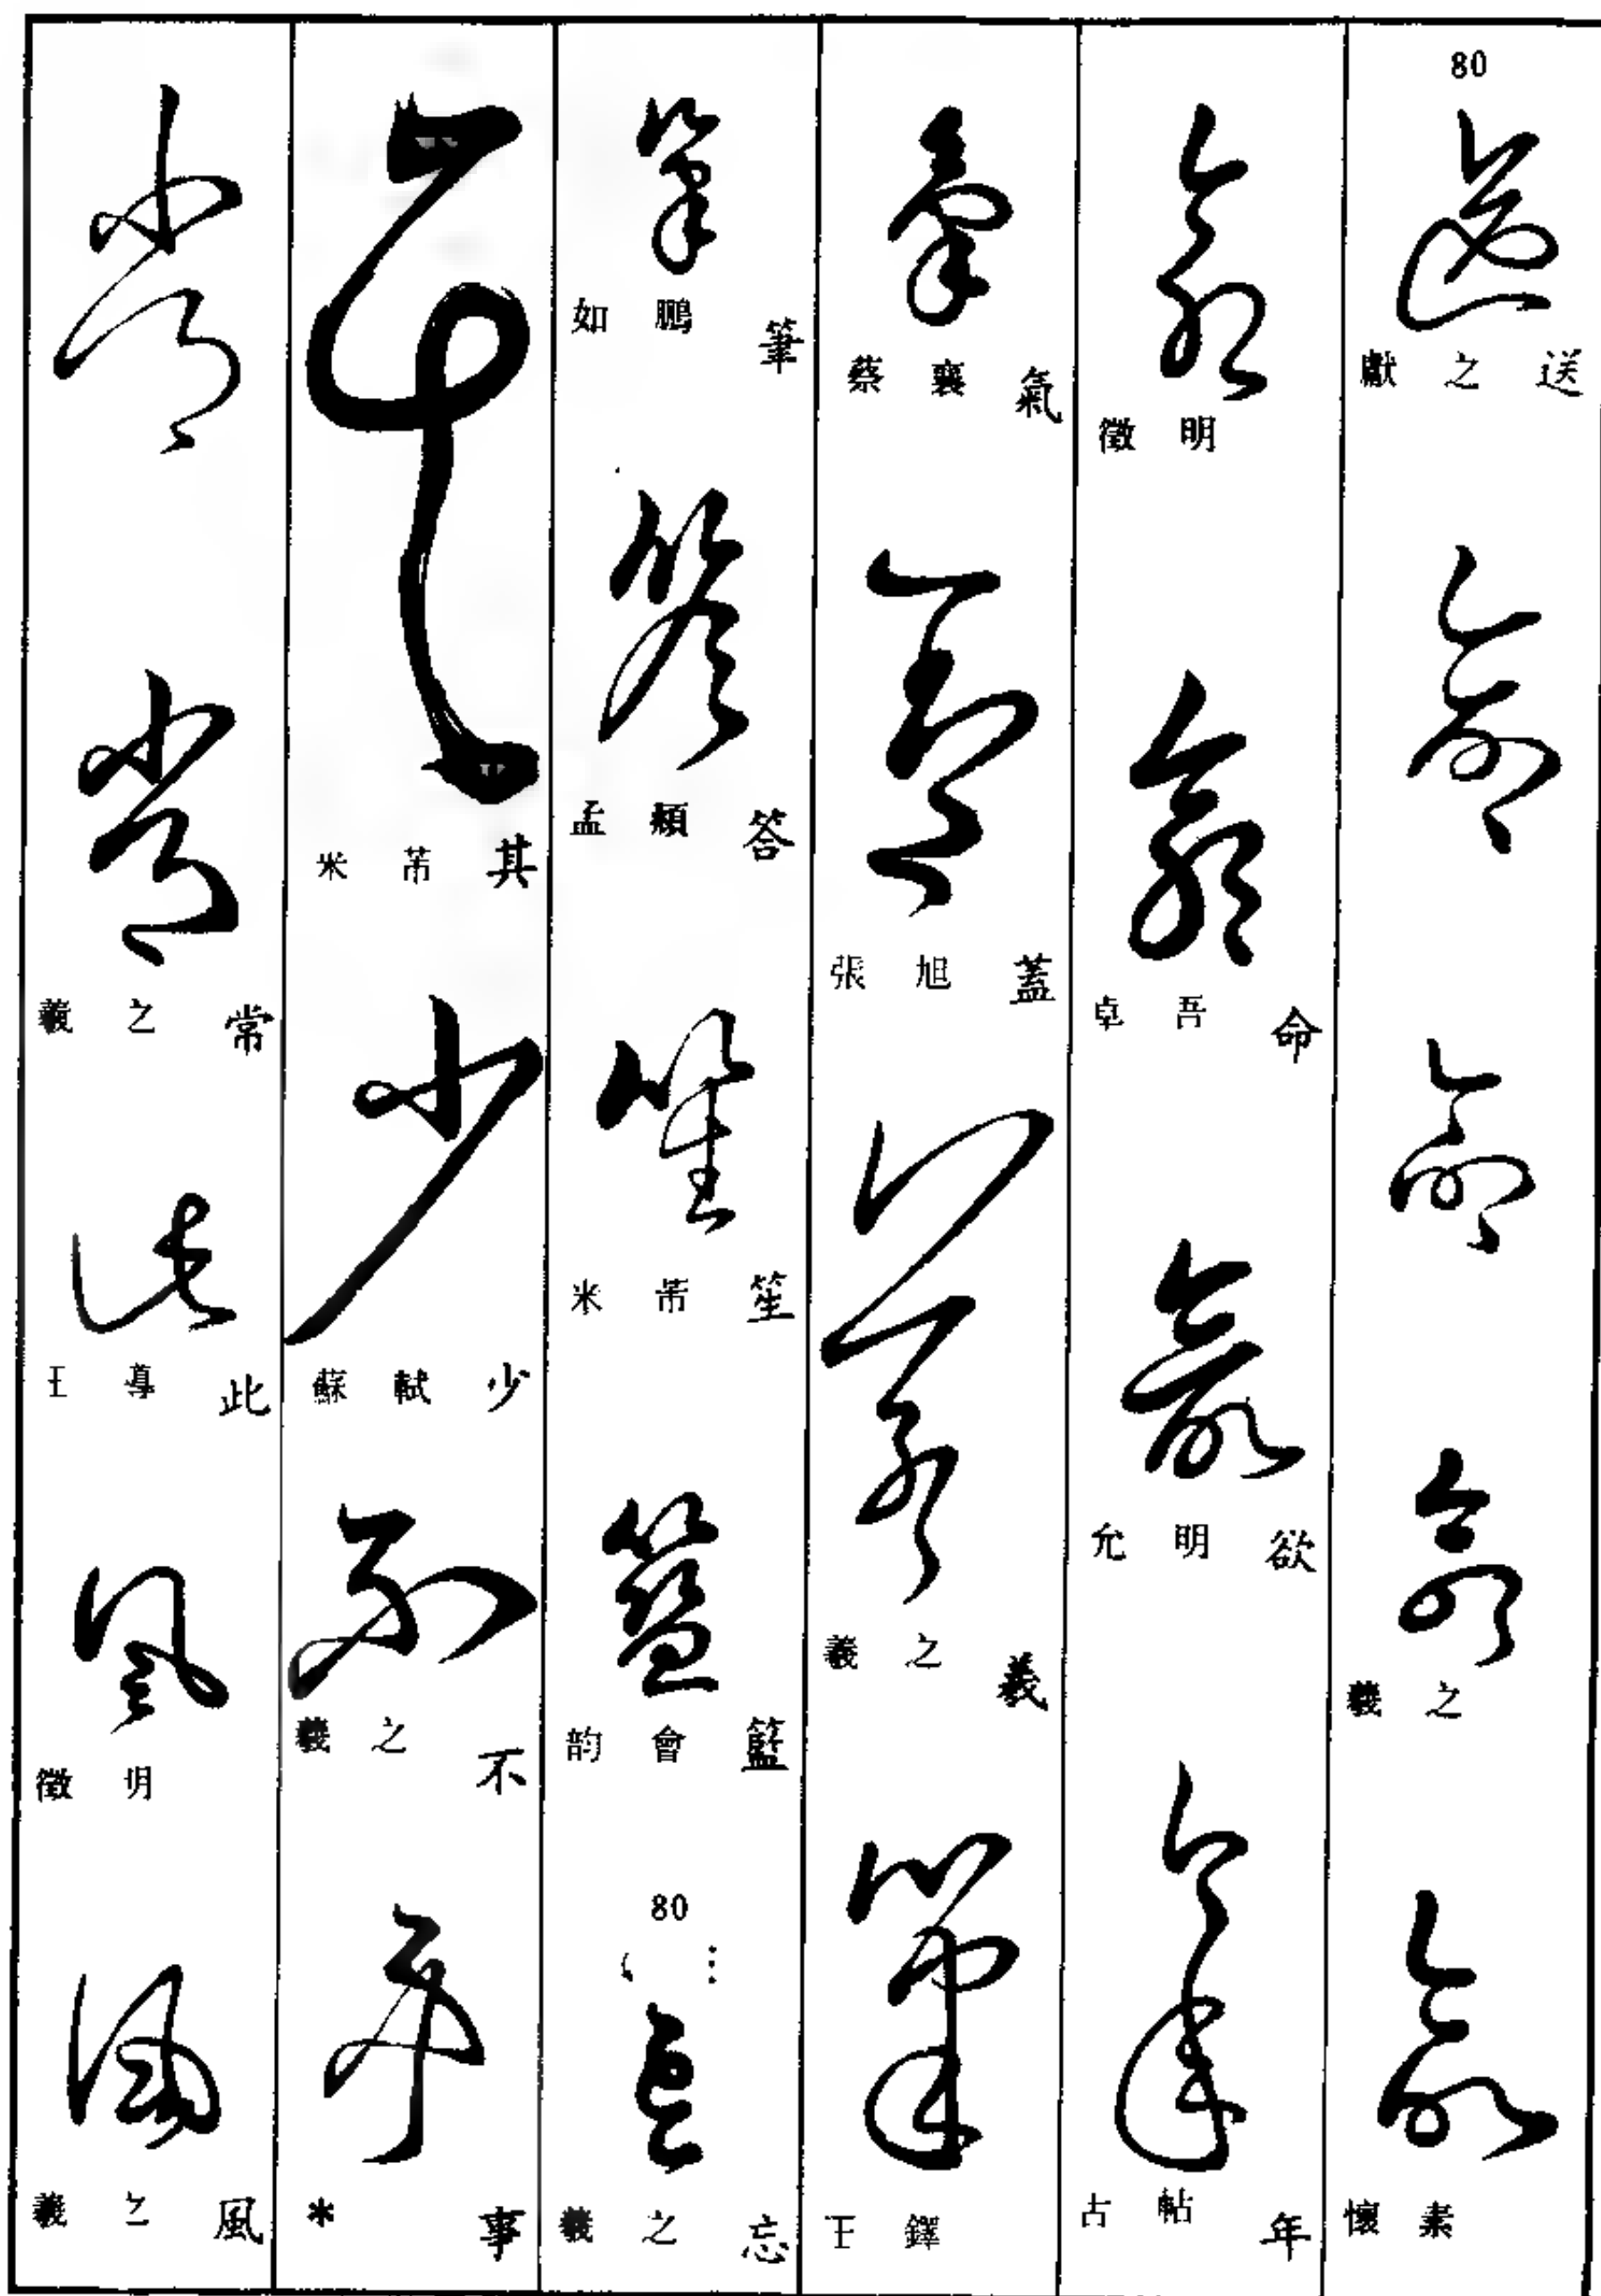 80
獻之 送
羲之
懷素
徵明
卓吾 命
允明 欲
古帖 年
蔡襄 氣
張旭 蓋
羲之 義
王鐸
如鵬 筆
孟頫 答
米芾 笙
韵會 籃
80
羲之 忘
米芾 其
蘇軾 少
羲之 不
* 事
羲之 常
王導 此
徵明
羲之 風